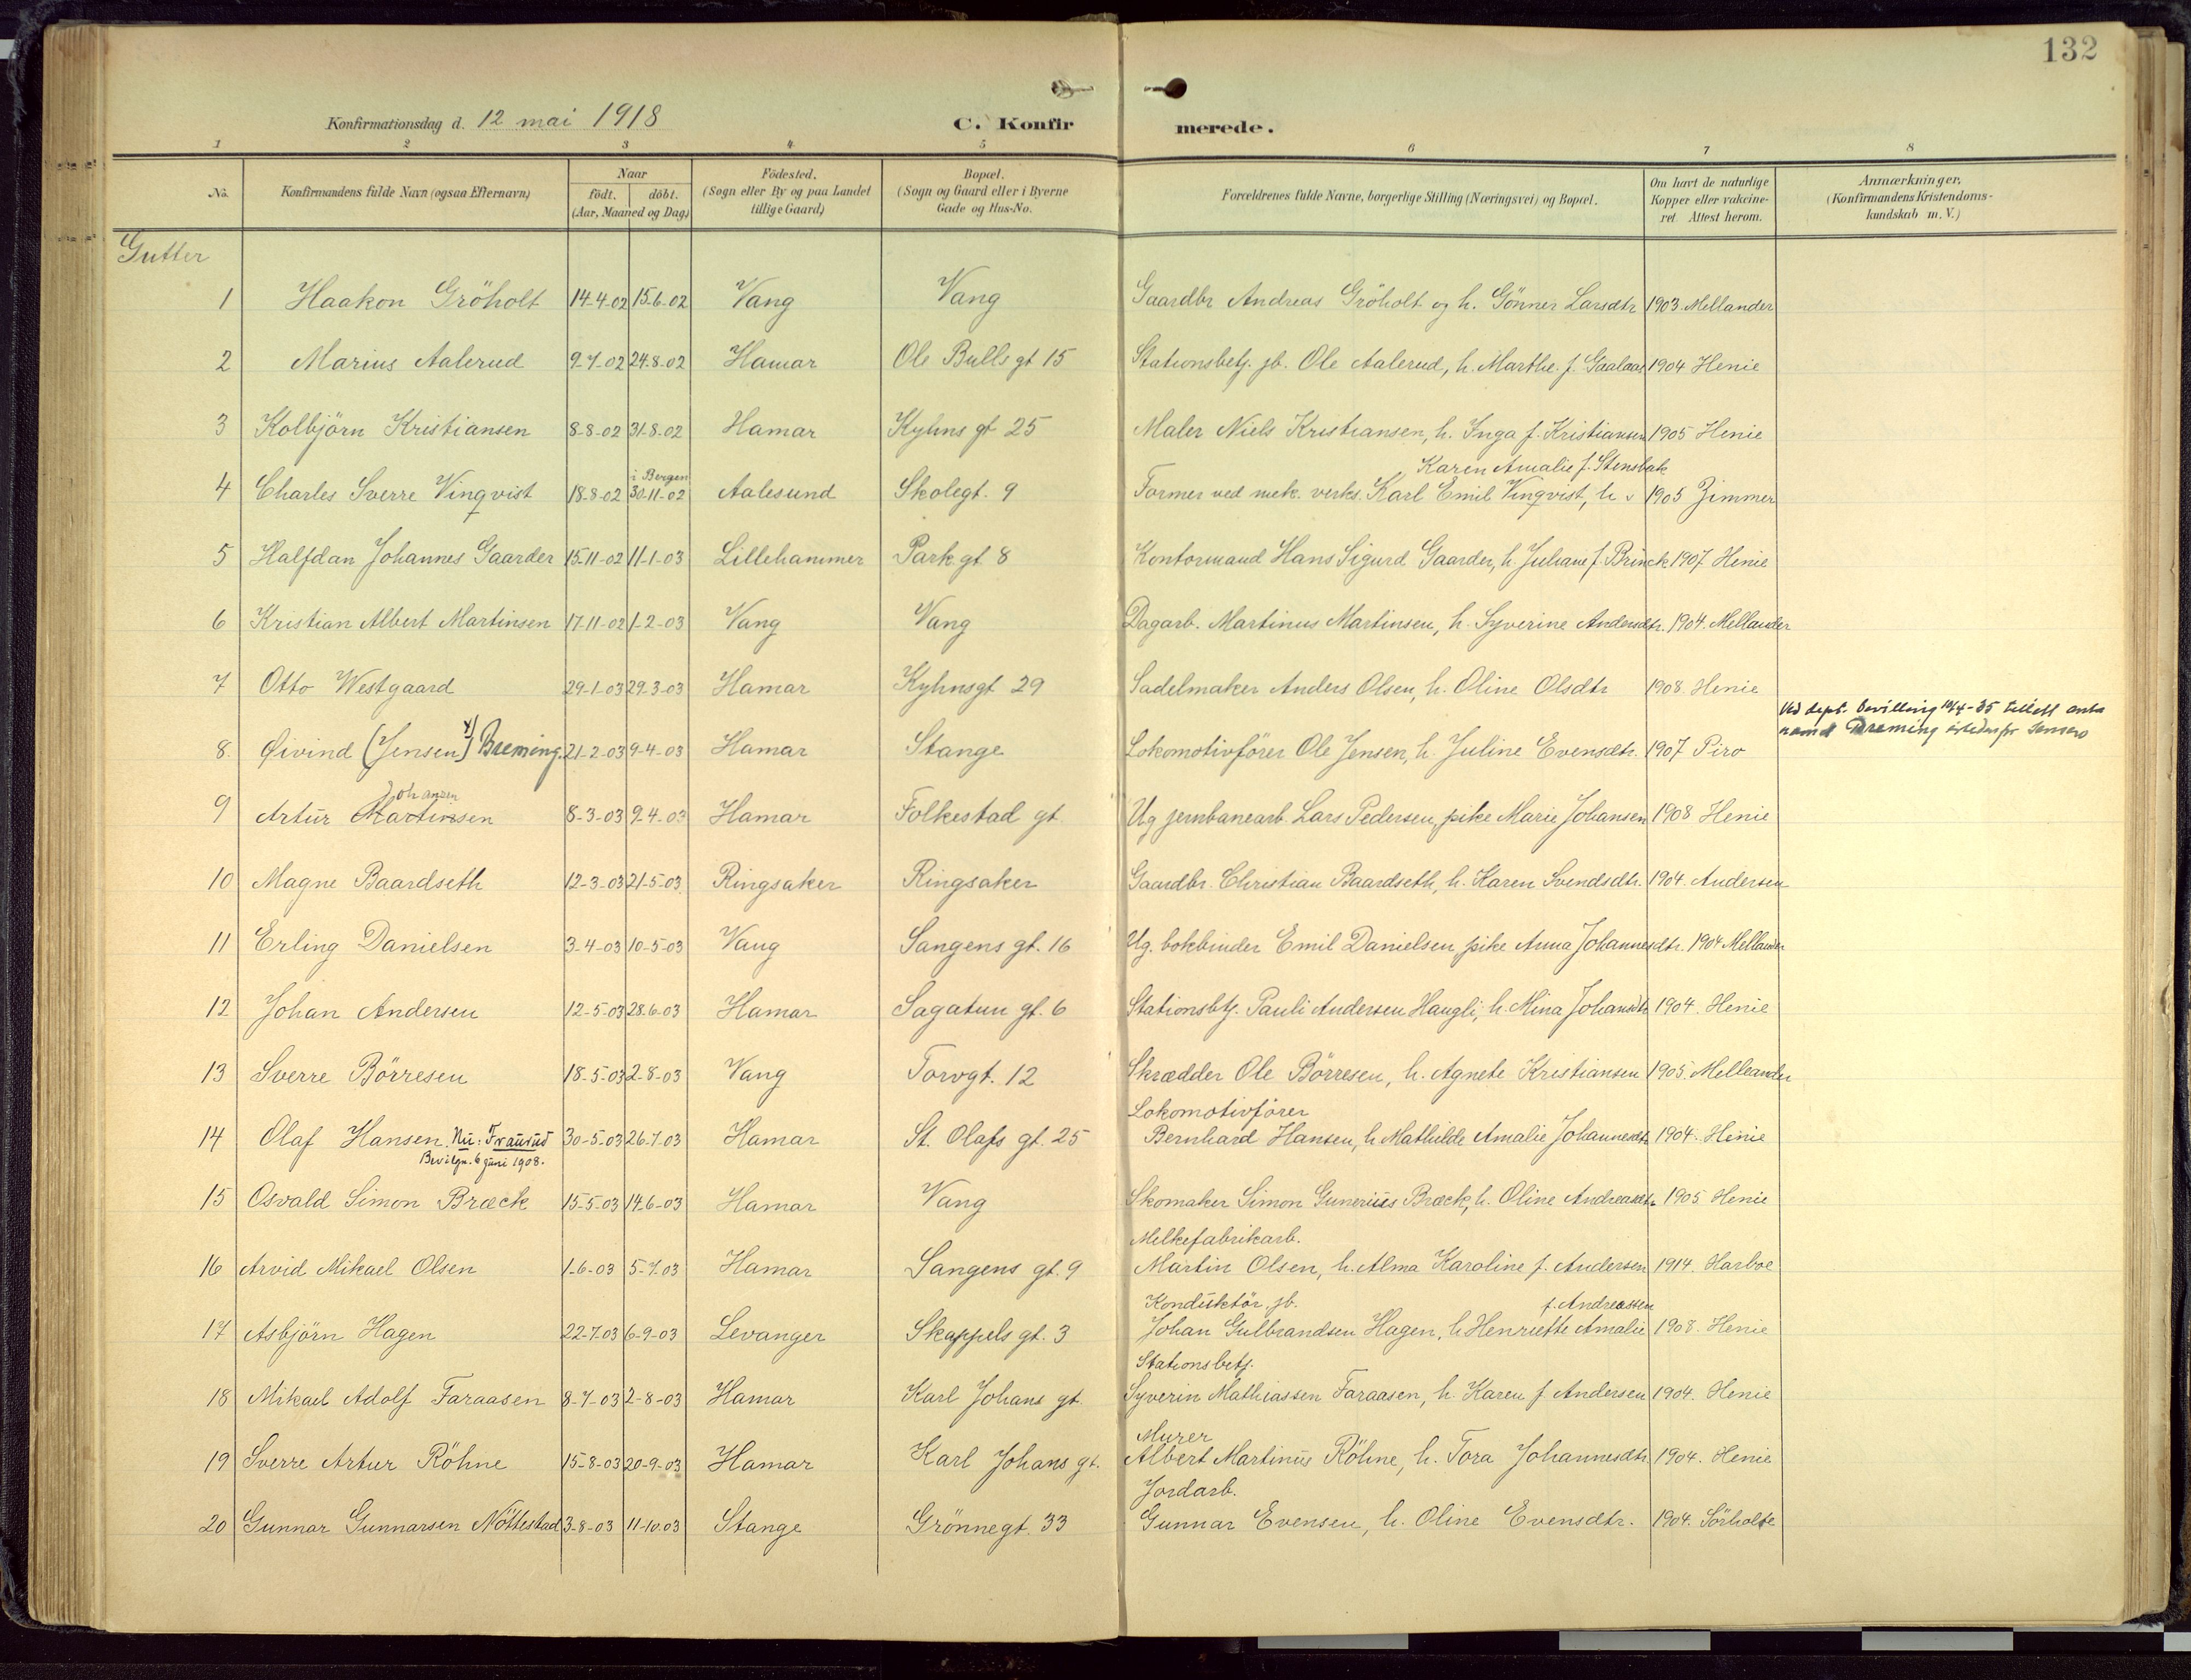 132
Konfirmationsdag d. 12 mai 1918
C. Konfirmerede.
1 2 3 4 5 6 7 8
No. Konfirmandens fulde Navn (ogsaa Efternavn) Naar födt. döbt. (Aar, Maaned og Dag) Födested. (Sogn eller By og paa Landet tillige Gaard) Bopæl. (Sogn og Gaard eller i Byerne Gade og Hus-No. Forældrenes fulde Navne, borgerlige Stilling (Næringsvei) og Bopæl. Om havt de naturlige Kopper eller vakcineret. Attest herom. Anmærkninger. (Konfirmandens Kristendomskundskab m. V.)
Gutter
1 Haakon Gröholt 14-4-02 15-6-02 Vang Vang Gaardbr Andreas Gröholt og h. Gönner Larsdtr 1903. Mellander
2 Marius Aalerud 9-7-02 24-8-02 Hamar Ole Bulls gt 15 Stationsbetj. jb. Ole Aalerud, h. Marthe f. Gaalaas 1904 Henie
3 Kolbjörn Kristiansen 8-8-02 31-8-02 Hamar Kyhns gt 25 Maler Niels Kristiansen, h. Inga f. Kristiansen 1905 Henie
Karen Amalie f. Stensbak
i Bergen
4 Charles Sverre Vinqvist 18-8-02 30-11-02 Aalesund Skolegt. 9 Former ved mek. verks. Karl Emil Vinqvist, h. v 1905 Zimmer
5 Halfdan Johannes Gaarder 15-11-02 11-1-03 Lillehammer Park gt 8 Kontormand Hans Sigurd Gaarder, h. Juliane f. Brinck 1907 Henie
6 Kristian Albert Martinsen 17-11-02 1-2-03 Vang Vang Dagarb. Martinus Martinsen, h. Syverine Andersdtr. 1904. Mellander
7 Otto Westgaard 29-1-03 29-3-03 Hamar Kyhnsgt 29 Sadelmaker Anders Olsen, h. Oline Olsdtr 1908 Henie
Ved dept. bevilling 10/4-35 tillatt anta
navnet Breming istedenfor Jensen
8. Øivind (Jensen) x) Breming. 21-2-03 9-4-03 Hamar Stange Lokomotivförer Ole Jensen, h. Juline Evensdtr. 1907 Piro
Johansen
9 Artur Martinsen 8-3-03 9-4-03 Hamar Folkestad gt Ug jernbanearb. Lars Pedersen, pike Marie Johansen 1908 Henie
10 Magne Baardseth 12-3-03 21-5-03 Ringsaker Ringsaker Gaardbr. Christian Baardseth, h. Karen Svendsdtr. 1904. Andersen
11 Erling Danielsen 3-4-03 10-5-03 Vang Sangens gt. 16 Ug. bokbinder Emil Danielsen, pike Anna Johannesdtr. 1904 Mellander
12 Johan Andersen 12-5-03 28-6-03 Hamar Sagatun gt. 6 Stationsbtj. Pauli Andersen Haugli, h. Mina Johansdtr 1904. Henie
13 Sverre Börresen 18-5-03 2-8-03 Vang Torvgt. 12 Skrædder Ole Börresen, h. Agnete Kristiansen 1905. Melleander
Lokomotivförer
14 Olaf Hansen. Nu: Fraurud 30-5-03 26-7-03 Hamar St. Olafs gt. 25 Bernhard Hansen, h Mathilde Amalie Johannesdtr 1904. Henie
Bevilgn. 6 juni 1908.
15 Osvald Simon Bræck 15-5-03 14-6-03 Hamar Vang Skomaker Simon Gunerius Bræck, h. Oline Andreasdtr 1905 Henie
Melkefabrikarb.
16 Arvid Mikael Olsen 1-6-03 5-7-03 Hamar Sangens gt. 9 Martin Olsen, h. Alma Karoline f. Andersen 1914. Harboe
Konduktör jb. f. Andreassen
17 Asbjörn Hagen 22-7-03 6-9-03 Levanger Skappels gt. 3 Johan Gulbrandsen Hagen, h Henriette Amalie 1908. Henie
Stationsbetj.
18 Mikael Adolf Faraasen 8-7-03 2-8-03 Hamar Karl Johans gt. Syverin Mathiassen Faraasen, h. Karen f. Andersen 1904. Henie
Murer
19 Sverre Artur Röhne 15-8-03 20-9-03 Hamar Karl Johans gt. Albert Martinus Röhne, h. Tora Johannesdtr. 1904. Henie
Jordarb.
20 Gunnar Gunnarsen Nöttestad 3-8-03 11-10-03 Stange Grönnegt. 33 Gunnar Evensen, h. Oline Evensdtr. 1904. Sörholte